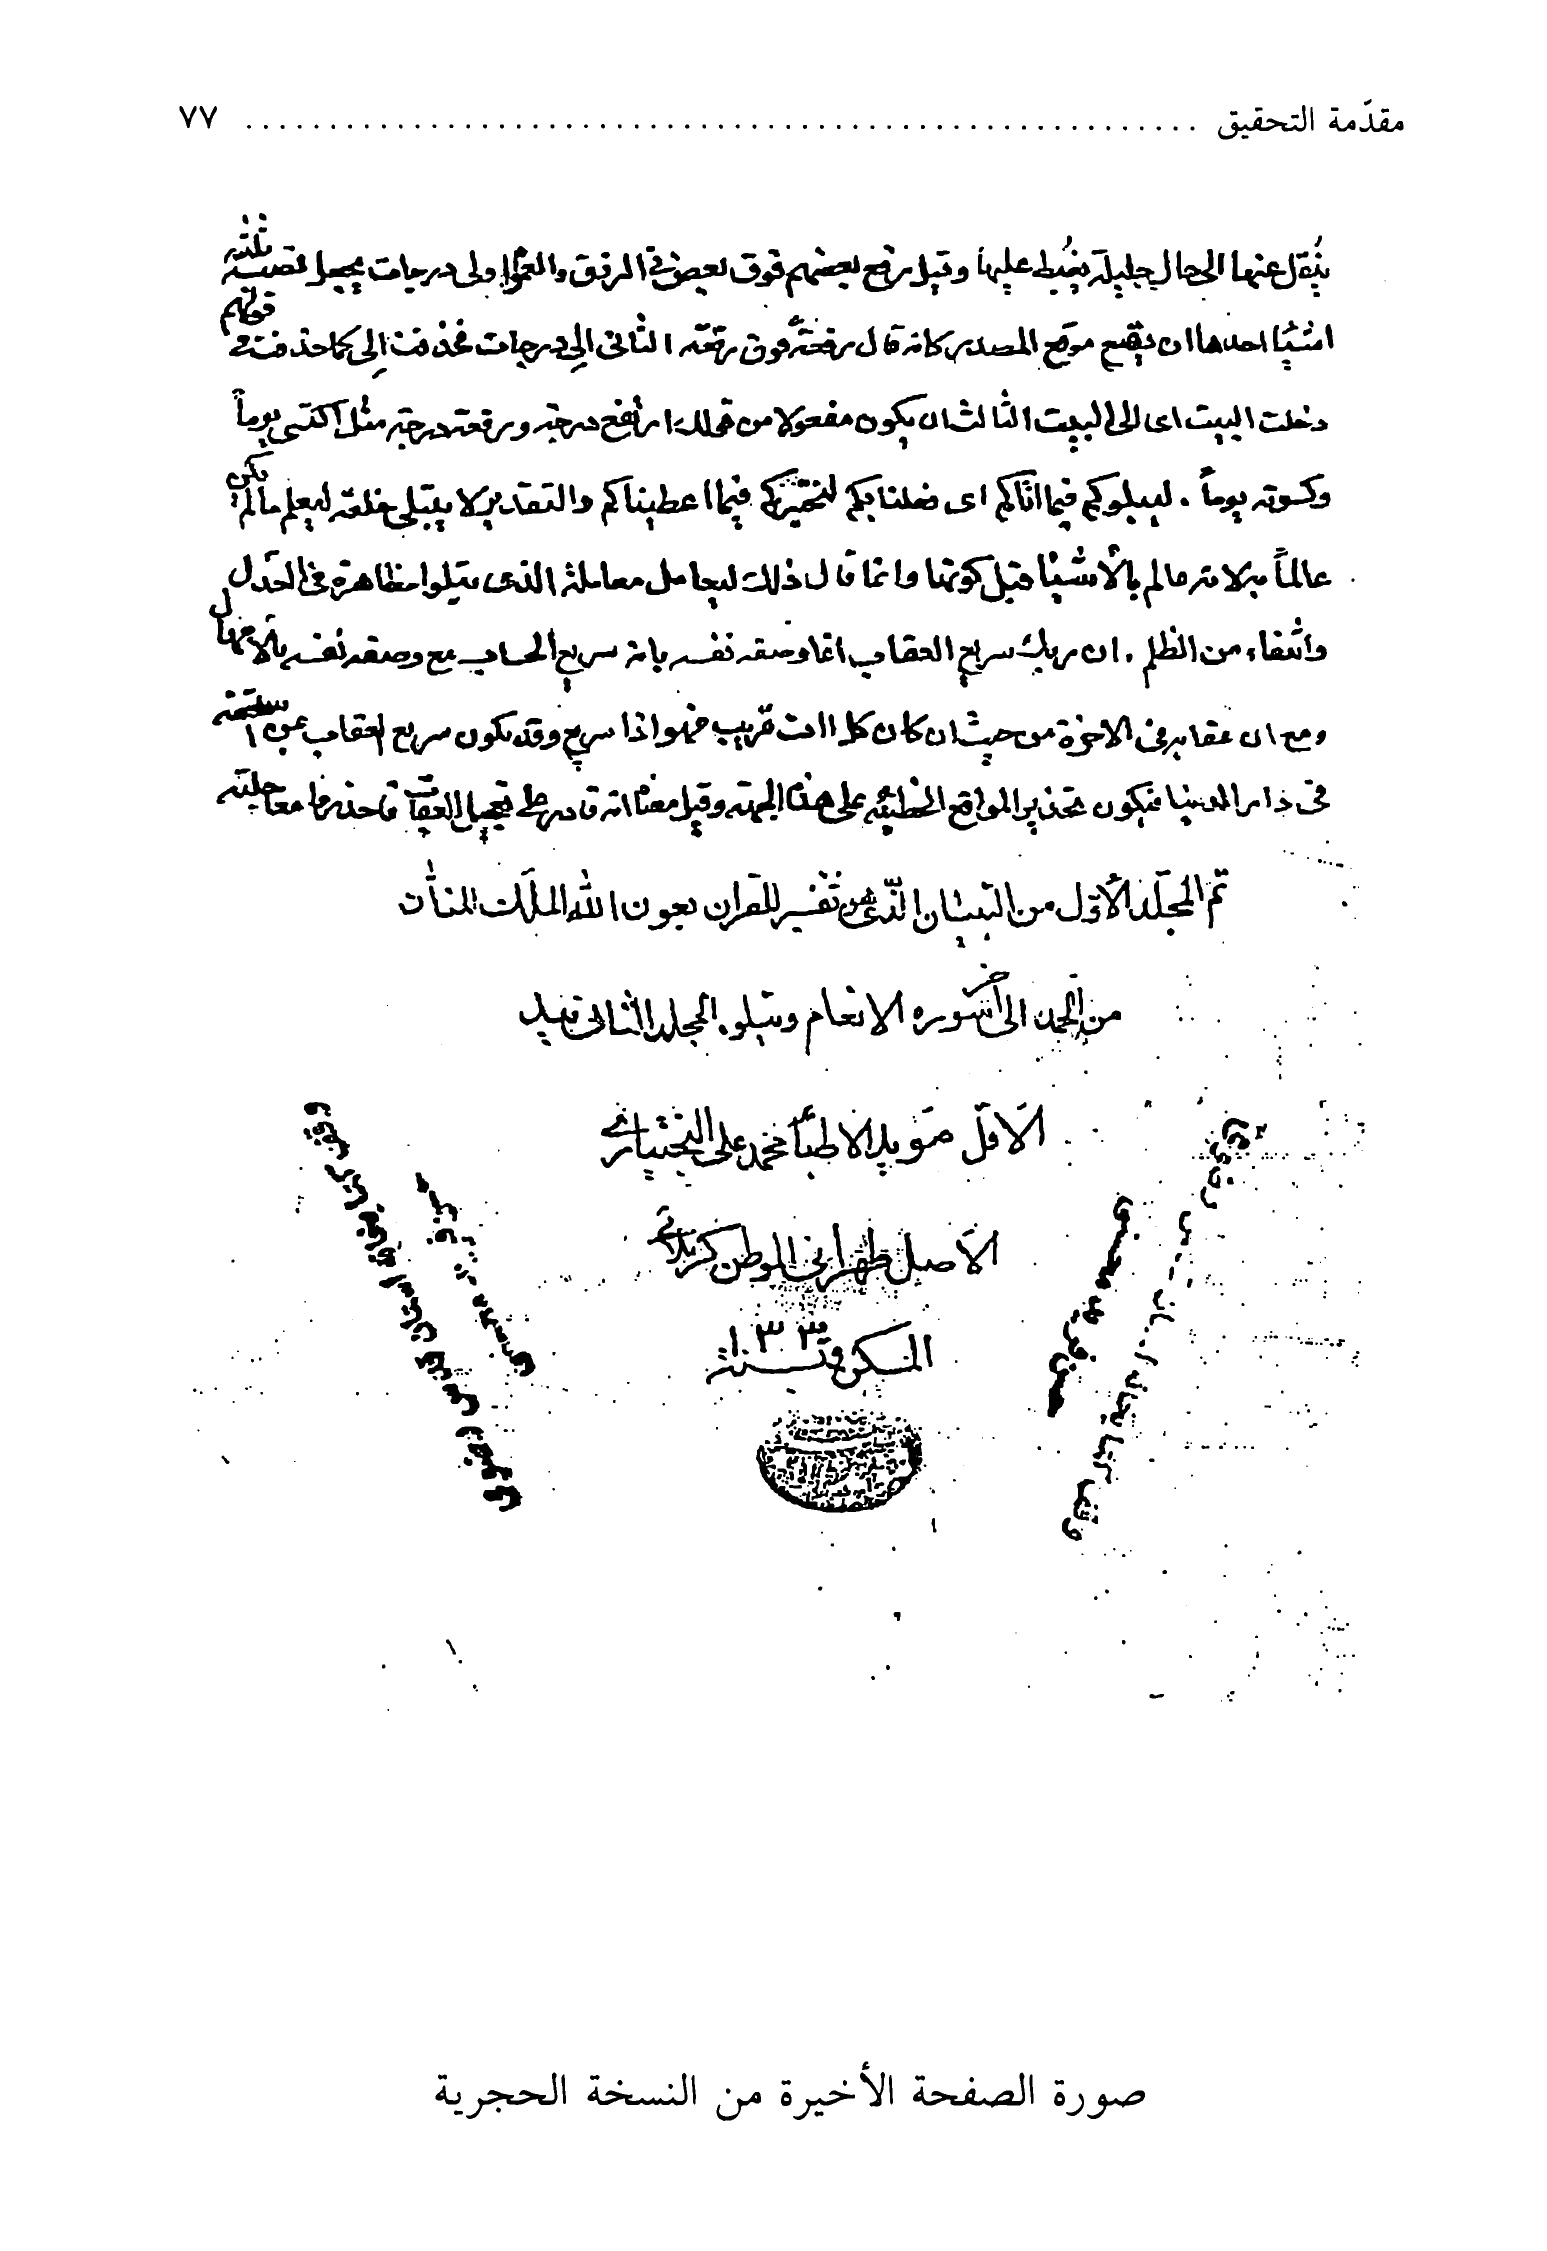 مقدّمة التحقيق ٧٧
ينقل عنها الى حال جليلة يغبط عليها وقيل رفع بعضهم فوق بعض فى الرزق والقوى ولى درجات يحتمل نصبه ثلثة
اشيا احدها ان يقع موقع المصدر كانه قال رفعة فوق رفعة الثانى الى درجات فحذفت الى كما حذفت فى قولهم
دخلت البيت اى الى البيت الثالث ان يكون مفعولا من قولك ارتفع درجة ورفعته درجة مثل اكتسى يوماً
وكسوته يوماً . ليبلوكم فيما اتاكم اى فعلنا بكم لنختبركم فيما اعطيناكم والتقدير لا يبتلى خلقه ليعلم مالم يكن
عالماً به لانه عالم بالأشيا قبل كونها وانما قال ذلك ليعامل معاملة الذى يبلوا مظاهرة فى العدل
وانتفاء من الظلم . ان ربك سريع العقاب انما وصف نفسه بانه سريع الحساب مع وصفه نفسه بالامهال
ومع ان عقابه فى الاخرة من حيث ان كان كل ات قريب فهو اذا سريع وقد يكون سريع العقاب بمن استحقه
فى دار الدنيا فيكون تحذير المواقع الخطيئة على هذه الجهة وقيل معناه انه قادر على تعجيل العقاب فاحذروا معاجلته
تم المجلد الأول من التبيان الذى هو تفسير للقرآن بعون الله الملك المنان
من الحمد الى آخر سوره الانعام ويتلوه المجلد الثانى بيد
الاقل مؤيد الاطبا محمد على البختيارى
الاصل طهرانى الموطن كربلائى
المسكن فى سنة ١٣٣
صورة الصفحة الأخيرة من النسخة الحجرية